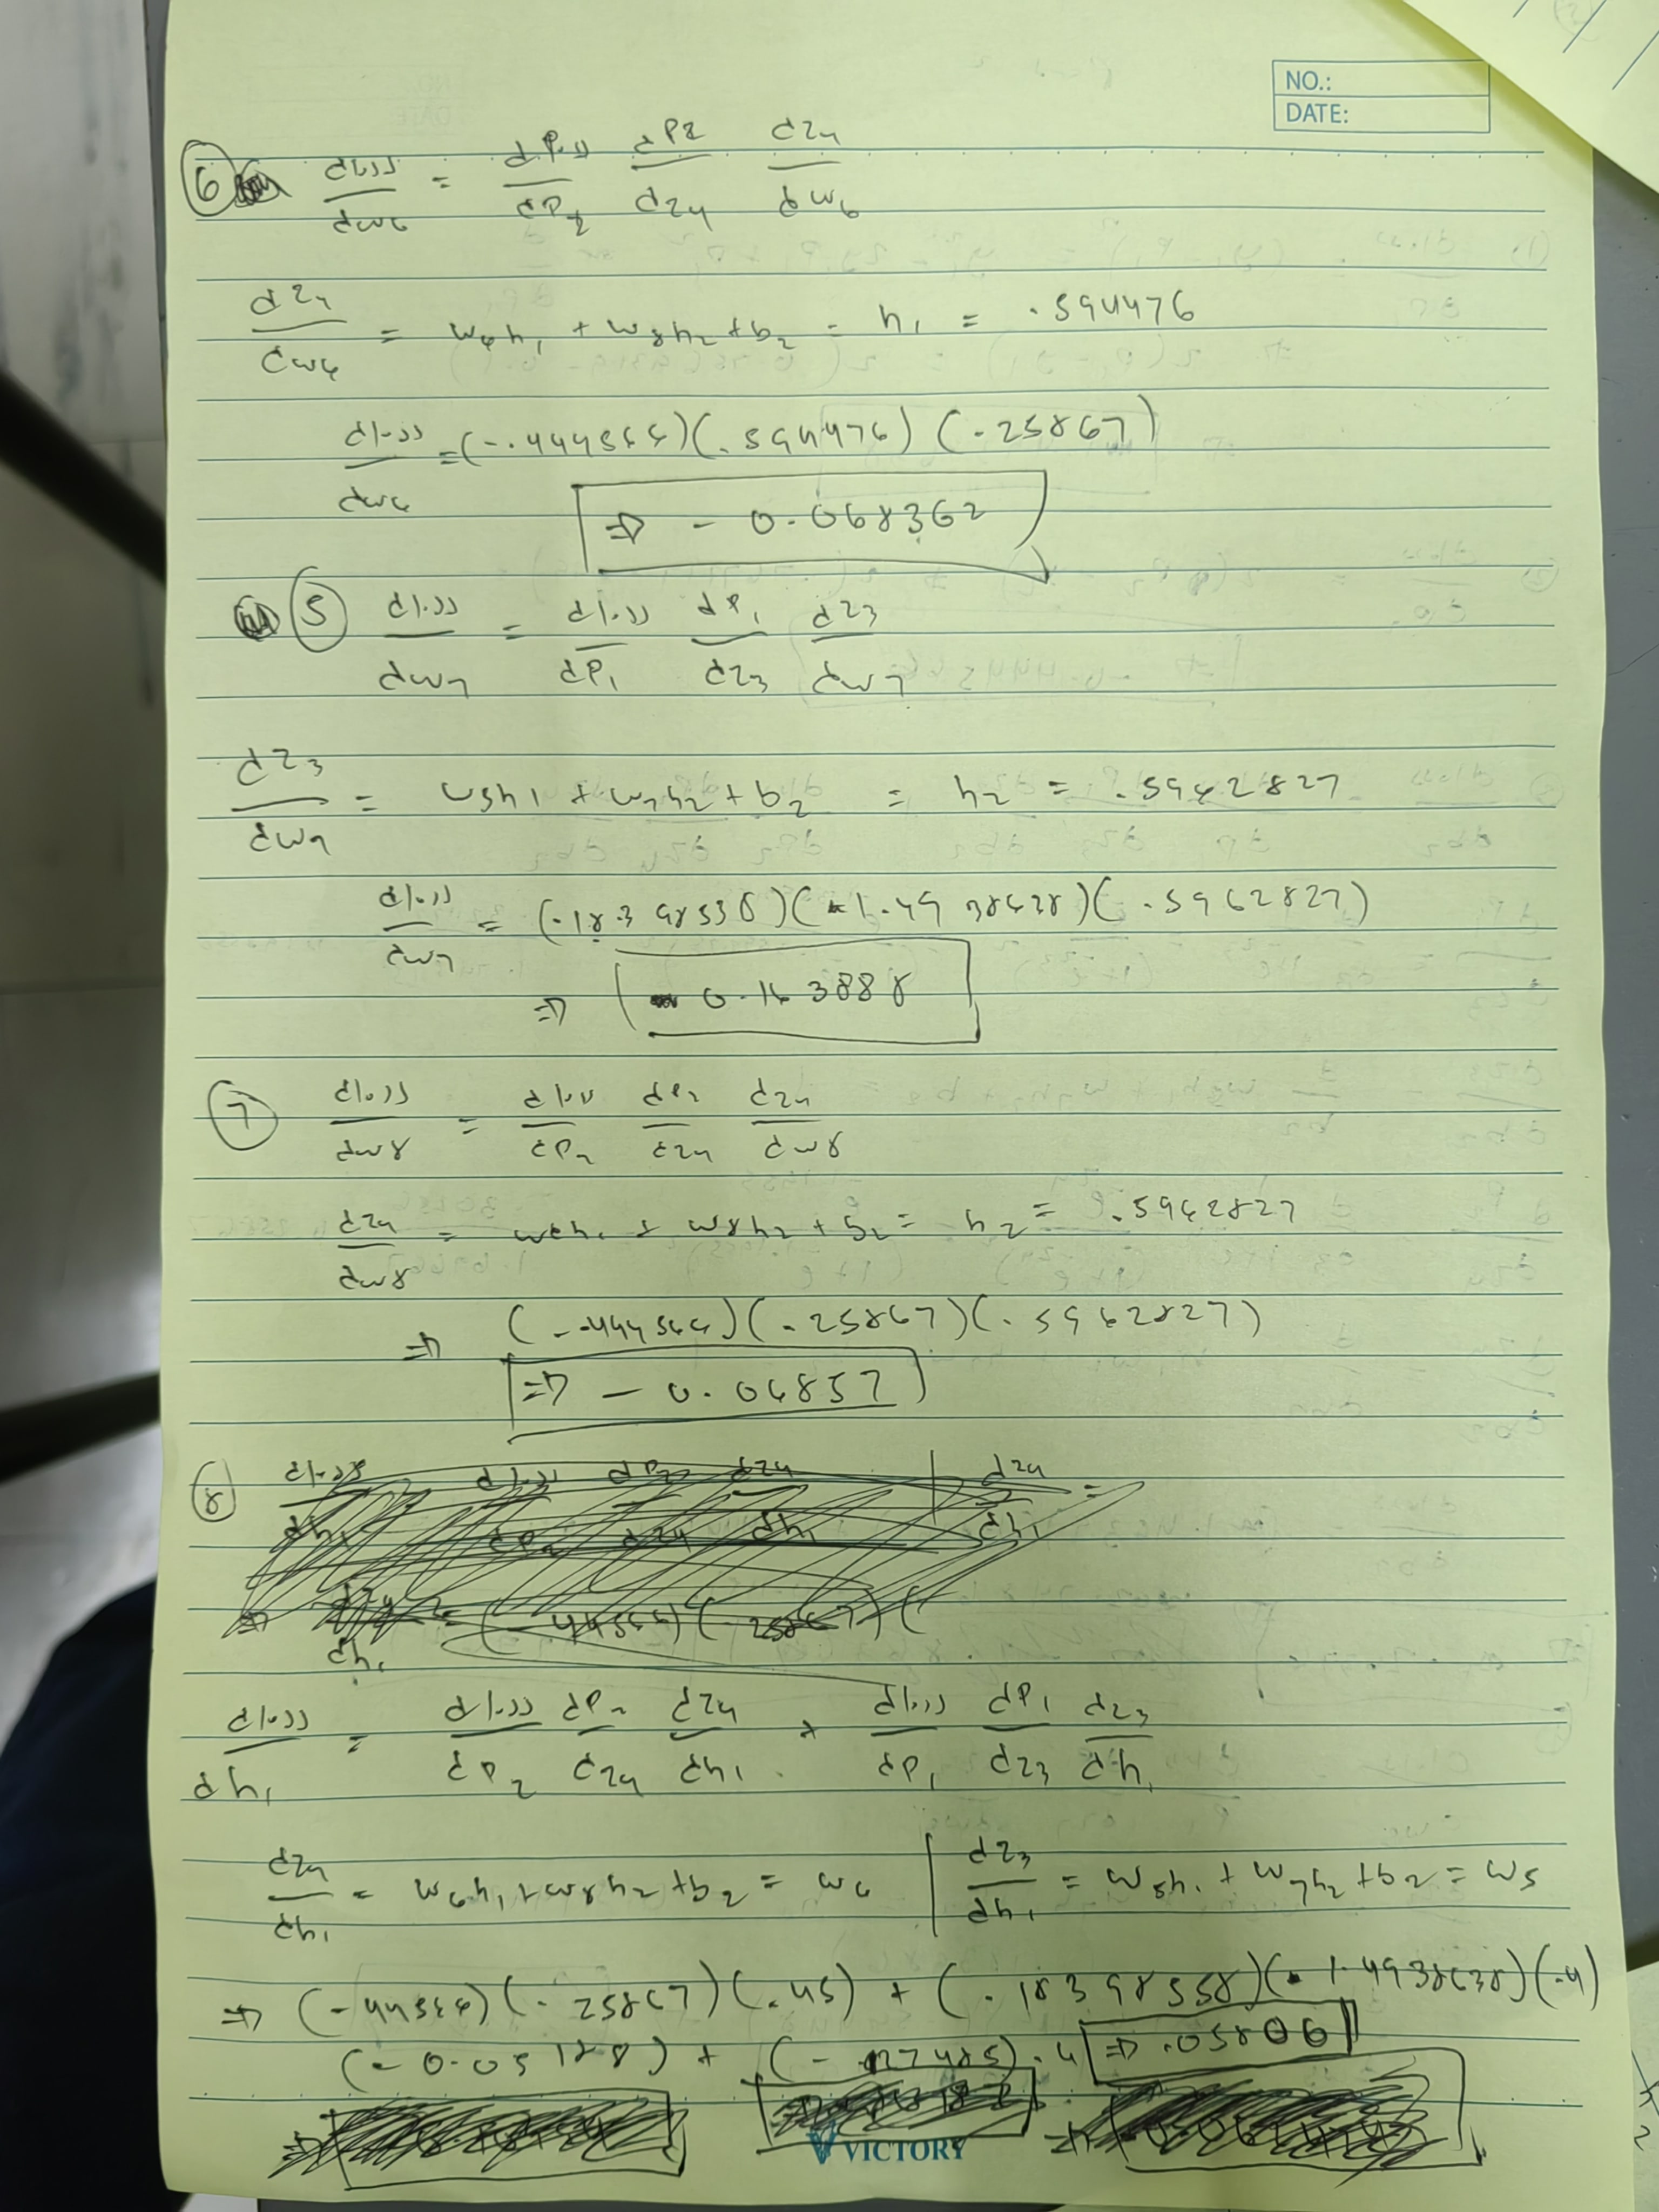 NO.:
DATE:
6 dloss/dw6 = dloss/dP2 dP2/dz4 dz4/dw6
dz4/dw6 = w6h1 + w8h2 + b2 = h1 = .594476
dloss/dw6 = (-.444566)(.594476)(.25867)
⇒ - 0.068362
5 dloss/dw7 = dloss/dP1 dP1/dz3 dz3/dw7
dz3/dw7 = w5h1 + w7h2 + b2 = h2 = .5962827
dloss/dw7 = (.18398558)(1.4938638)(.5962827)
⇒ 0.163888
7 dloss/dw8 = dloss/dP2 dP2/dz4 dz4/dw8
dz4/dw8 = w6h1 + w8h2 + b2 = h2 = .5962827
⇒ (-.444566)(.25867)(.5962827)
⇒ - 0.06857
8
dloss/dh1 = dloss/dP2 dP2/dz4 dz4/dh1 + dloss/dP1 dP1/dz3 dz3/dh1
dz4/dh1 = w6h1 + w8h2 + b2 = w6 | dz3/dh1 = w5h1 + w7h2 + b2 = w5
⇒ (-44566)(.25867)(.45) + (.18398558)(1.4938638)(.4)
(-0.05188) + (.27485).4 ⇒ .05806
VICTORY